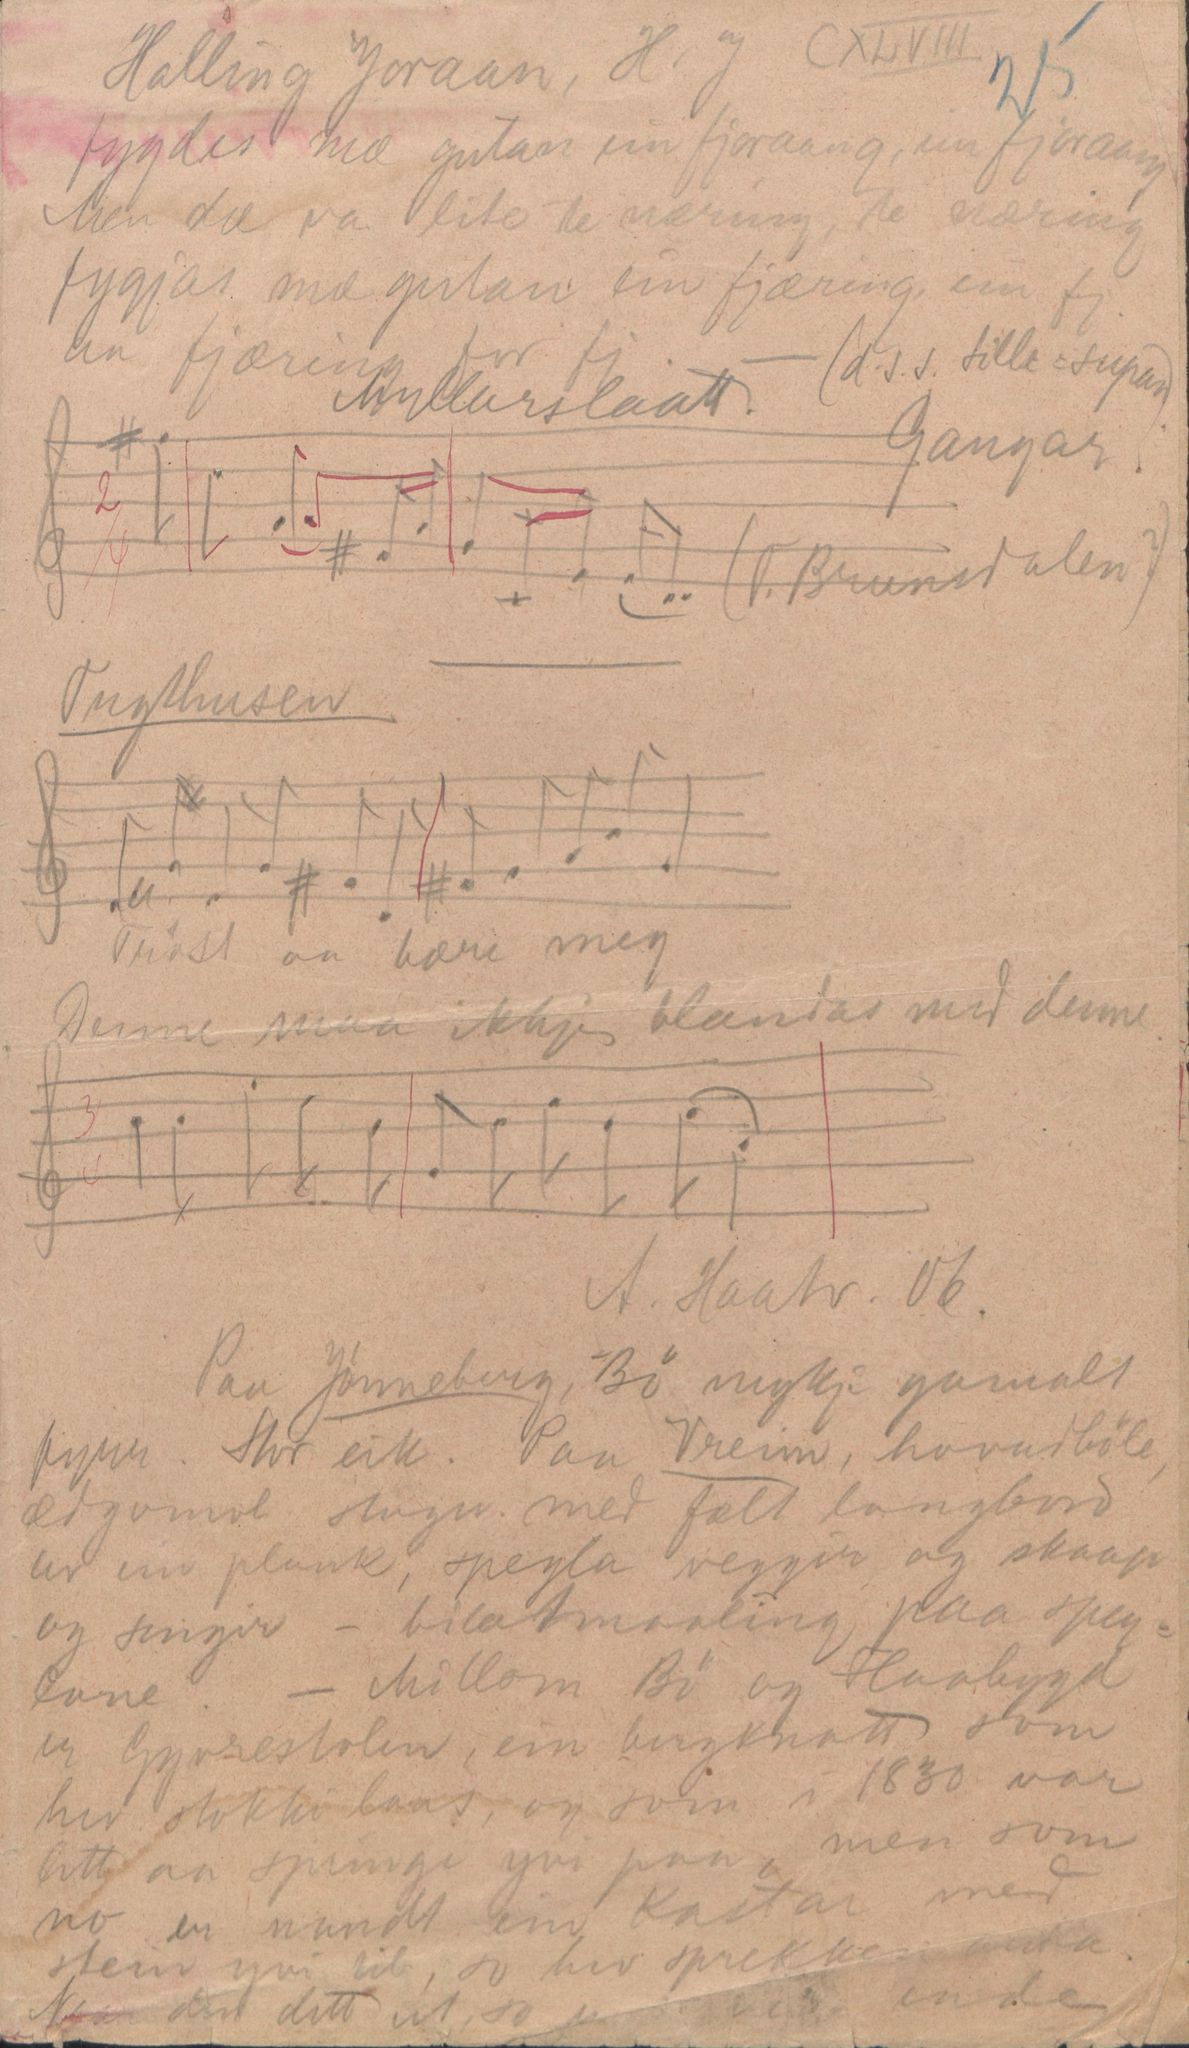 Halling Joraan, H. og CXLVIII 25
fygdes mæ gutan ein fjoraang, ein fjoraang
Men dæ va lite te næring, te næring
fygjas mæ gutan ein fjæring, ein fj.
aa fjæring for fj. — (d.s.s. sille = supan)
Myllarslaatt.
Gangar.
2/4
(T. Brunsdalen?)
Tugthusen
Tröst aa bære meg
Denne maa ikkje blandas med denne
3
A. Haatv. 06.
Paa Jönneberg, Bö mykje gamalt
fyrr. Stor eik. Paa Vreim, hovudböle,
ældgomol stogu med fælt langbord
av ein plank, spegla veggir og skaap
og sengir – bilætmaaling paa speg=
lane. — Millom Bö og Flaabygd
er Gyvrestolen, ein bergknatt som
hev stokki laus, og som i 1830 var
lett aa springe yvi paa, men som
no er vandt ein kastar med
stein yvi til, so hev sprekken
Naar den dett ut, so ende